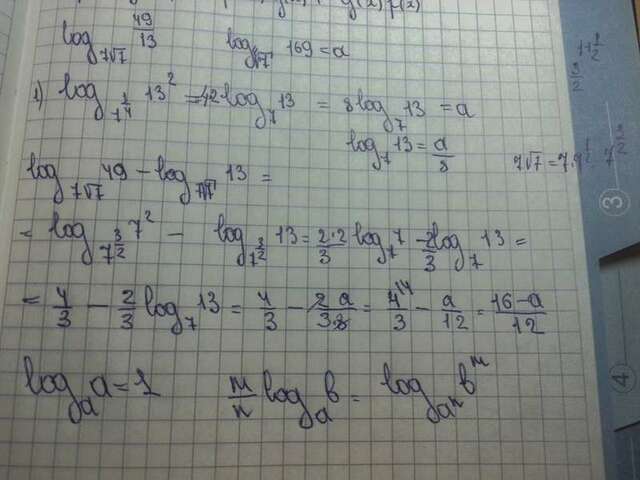 log_{7√7} 49/13    log_{∜7} 169 = a
1) log_{7^{1/4}} 13² = 4·2 log_7 13 = 8 log_7 13 = a
log_7 13 = a/8
7√7 = 7·7^{1/2} 7^{3/2}
1+1/2
3/2
log_{7√7} 49 - log_{7√7} 13 =
= log_{7^{3/2}} 7² - log_{7^{3/2}} 13 = 2·2/3 log_7 7 - 2/3 log_7 13 =
= 4/3 - 2/3 log_7 13 = 4/3 - 2a/3·8 = 4^{\4}/3 - a/12 = 16-a/12
log_a a = 1    m/n log_a b = log_{a^n} b^m
3
4